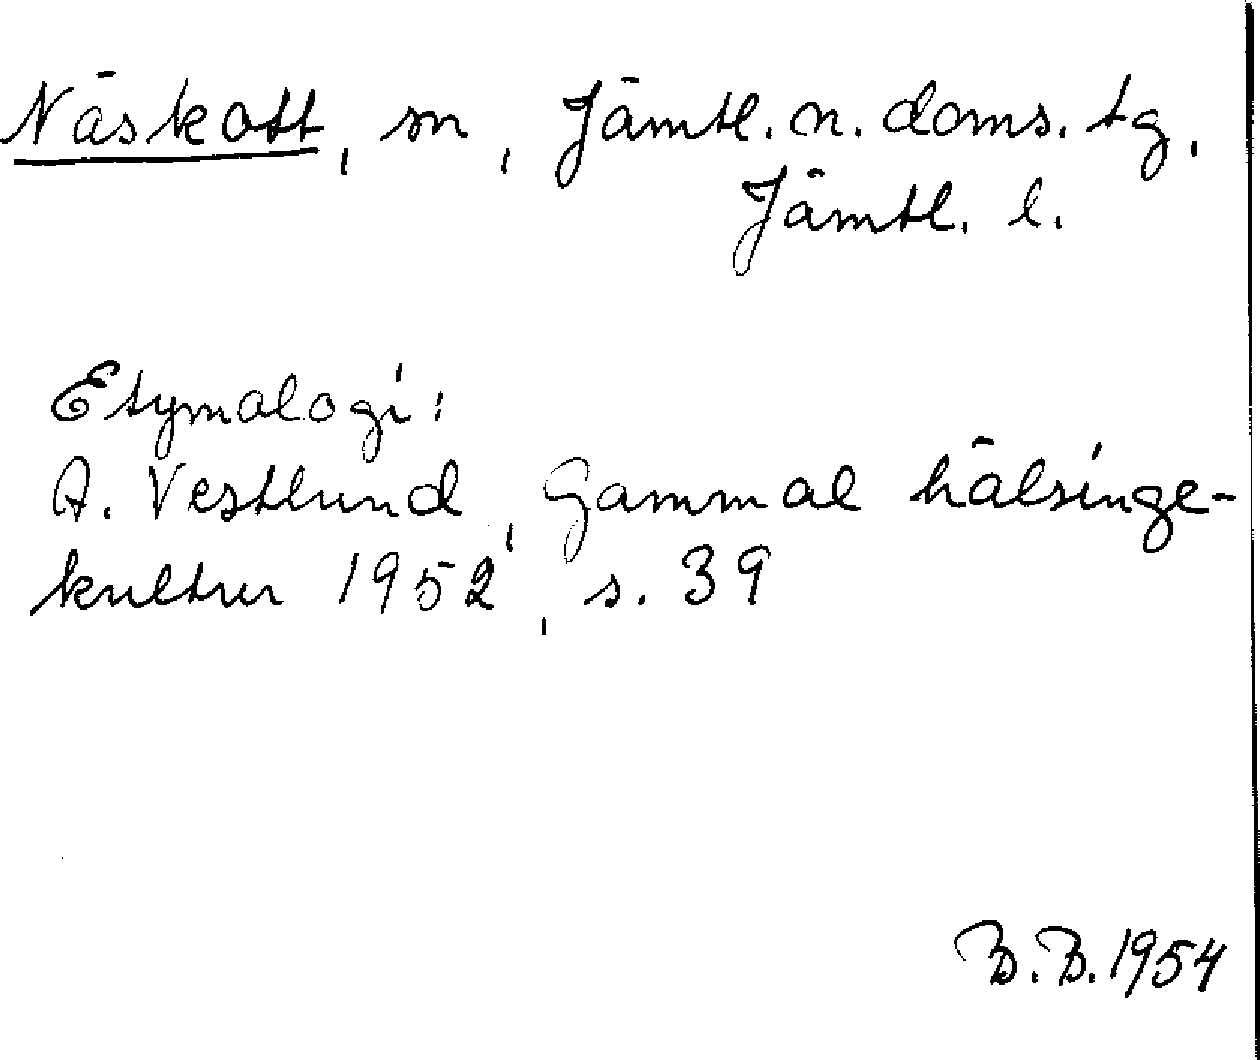 Näskott, sn, Jämtl. n. doms. tg,
Jämtl. l.
Etymologi:
A. Vestlund, Gammal hälsinge-
kultur 1952, s. 39
B.B. 1954